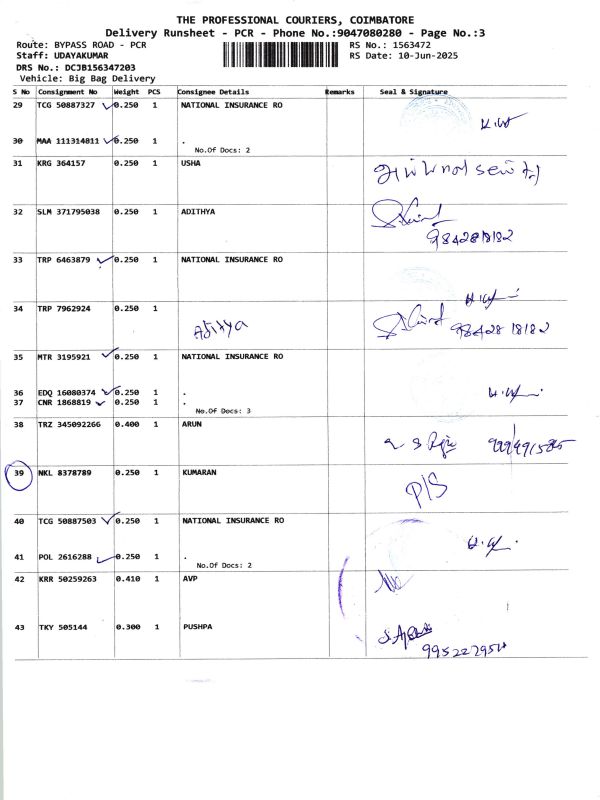 THE PROFESSIONAL COURIERS, COIMBATORE
Delivery Runsheet - PCR - Phone No.:9047080280 - Page No.:3
Route: BYPASS ROAD - PCR RS No.: 1563472
Staff: UDAYAKUMAR RS Date: 10-Jun-2025
DRS No.: DCJB156347203
Vehicle: Big Bag Delivery
S No Consignment No Weight PCS Consignee Details Remarks Seal & Signature
29 TCG 50887327 0.250 1 NATIONAL INSURANCE RO
30 MAA 111314811 0.250 1 .
No.Of Docs: 2
31 KRG 364157 0.250 1 USHA
32 SLM 371795038 0.250 1 ADITHYA
9842818182
33 TRP 6463879 0.250 1 NATIONAL INSURANCE RO
34 TRP 7962924 0.250 1
Aditya 9842818182
35 MTR 3195921 0.250 1 NATIONAL INSURANCE RO
36 EDQ 16080374 0.250 1 .
37 CNR 1868819 0.250 1 .
No.Of Docs: 3
38 TRZ 345092266 0.400 1 ARUN
39 NKL 8378789 0.250 1 KUMARAN
P/S
40 TCG 50887503 0.250 1 NATIONAL INSURANCE RO
41 POL 2616288 0.250 1 .
No.Of Docs: 2
42 KRR 50259263 0.410 1 AVP
43 TKY 505144 0.300 1 PUSHPA